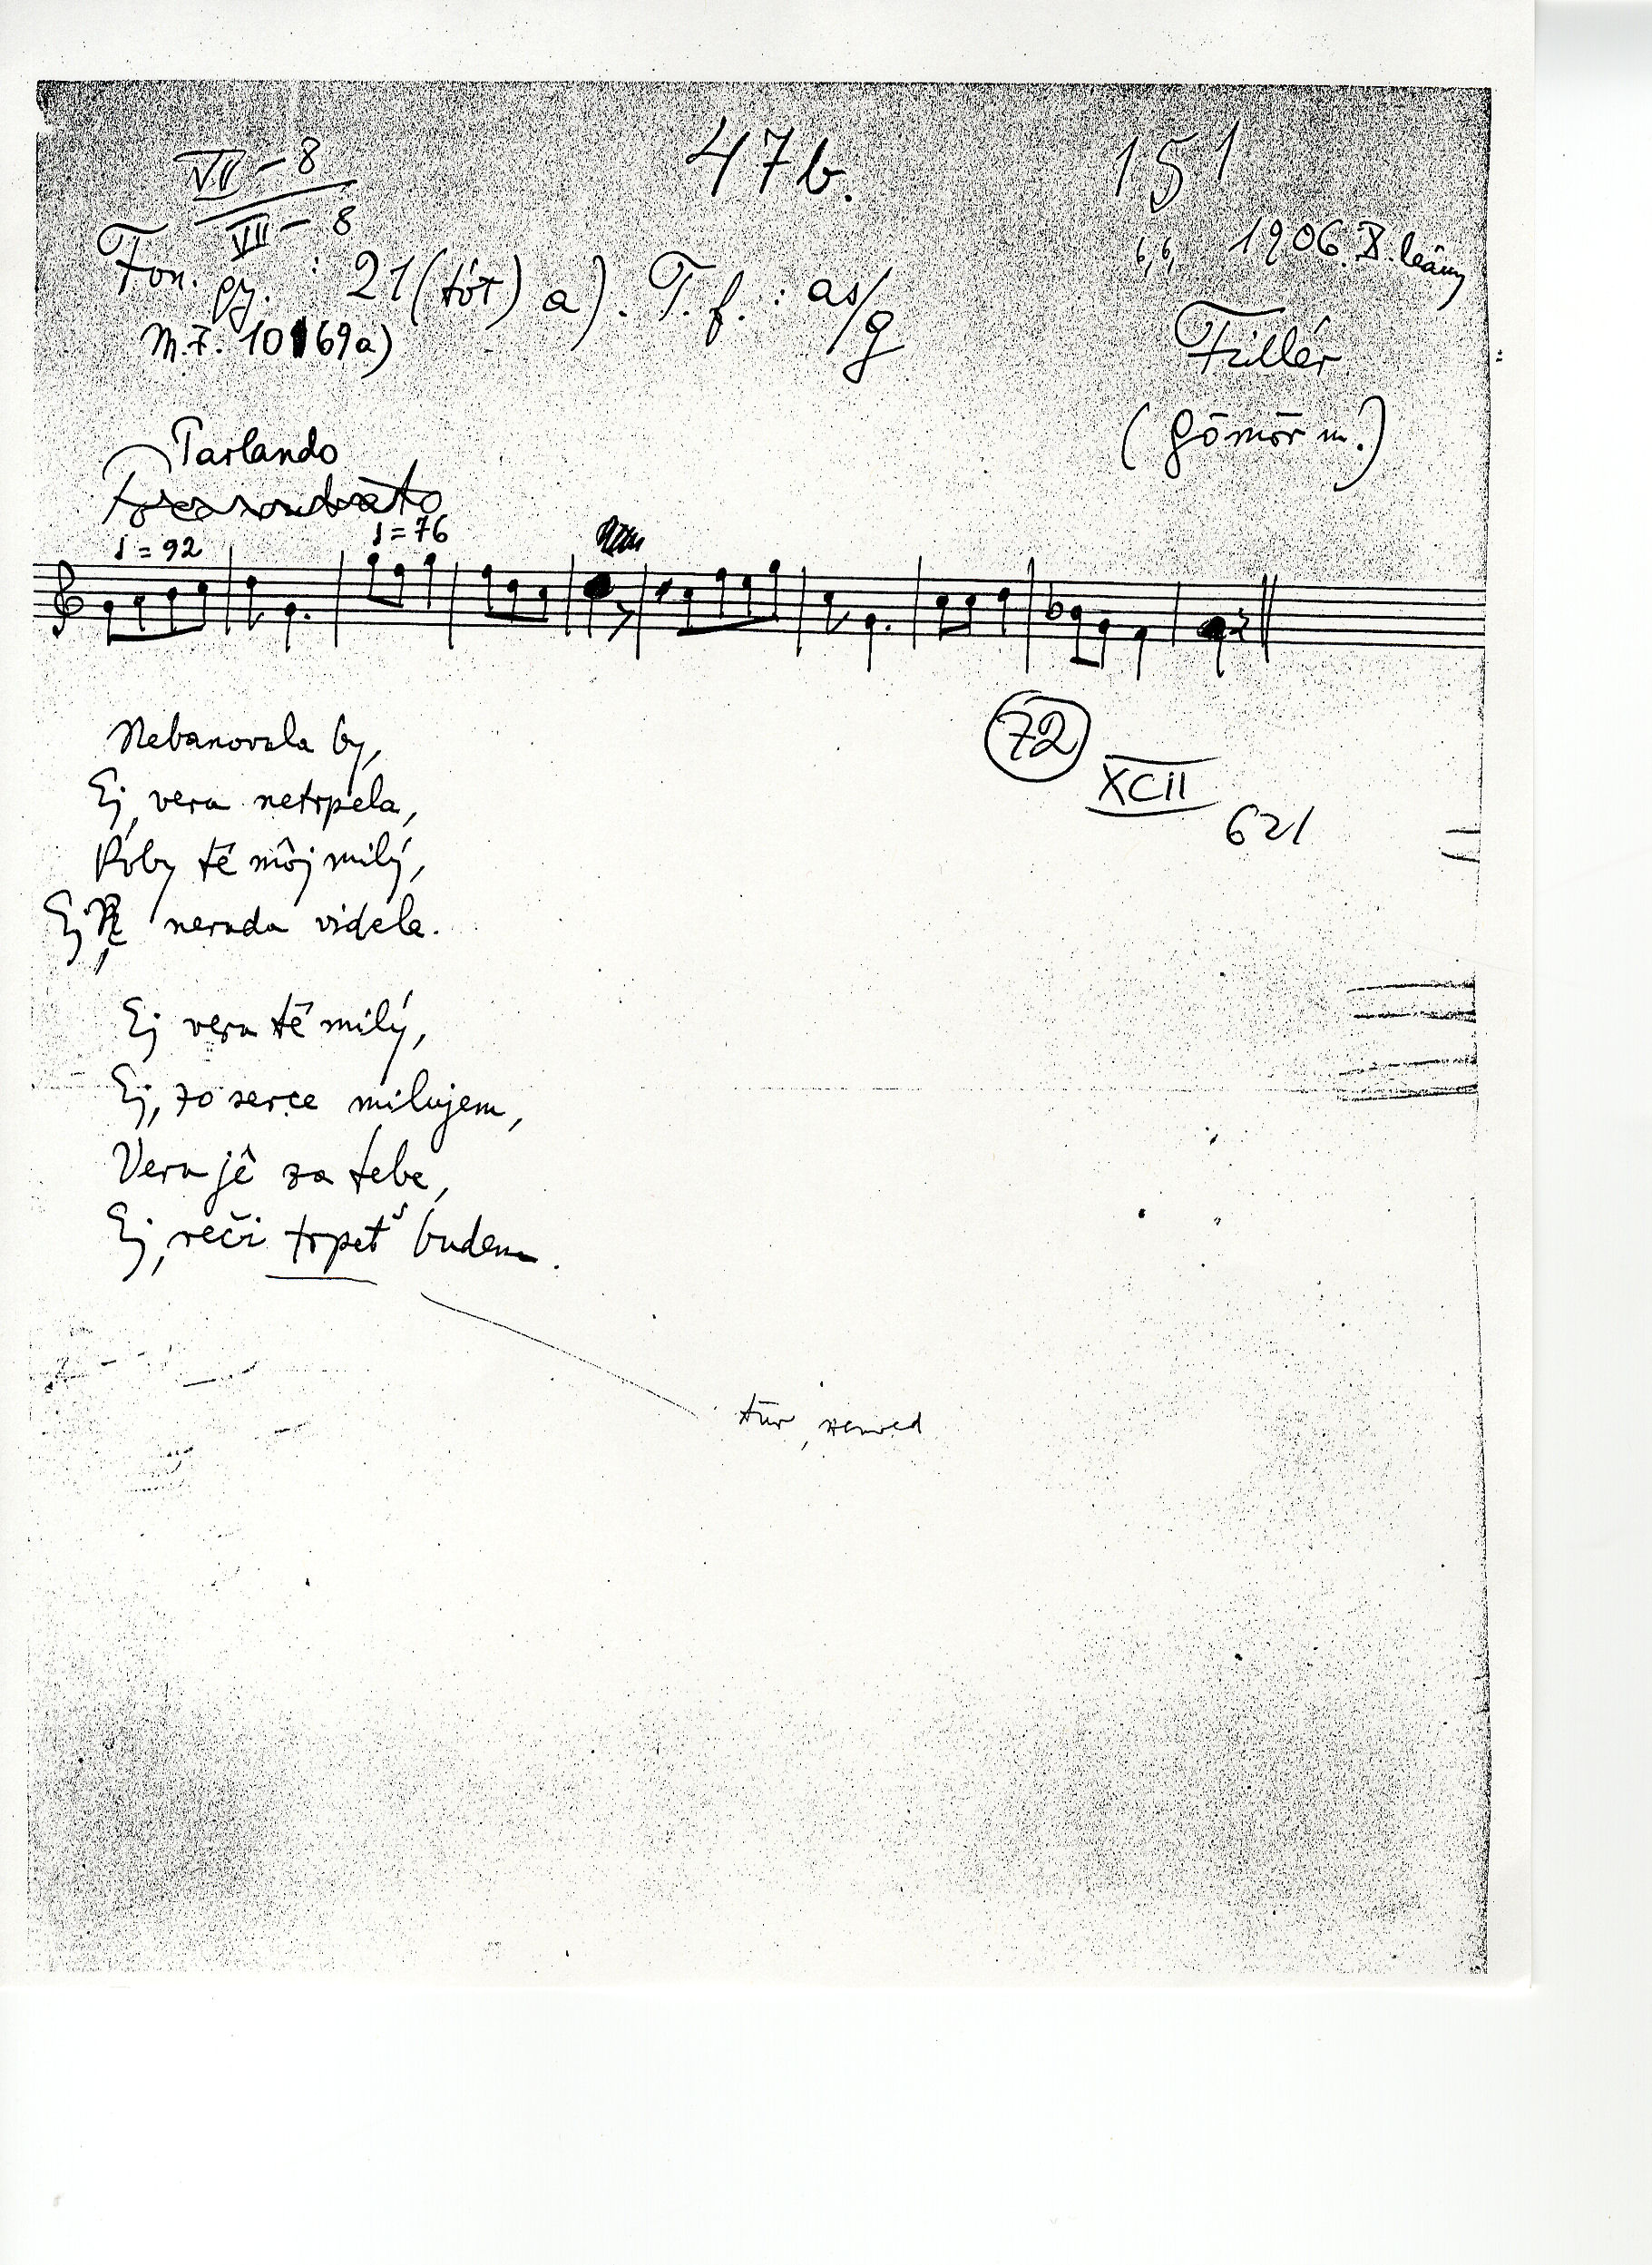 VII-8
VII-8
47b.
151
Fon. gy. : 21 (tót) a). T. f. : as/g
6,6, 1906. X. leány
M.F. 10 69a)
Fillér
(Gömör m.)
Parlando
♩ = 92
♩ = 76
Nebanovala by,
Ej, vera netrpela,
Koby tě môj milý,
Ej, nerada videla.
72
XCII
621
Ej vera tě milý,
Ej, zo serce milujem,
Vera jê za tebe,
Ej, reči trpeť budem.
tür, szenved